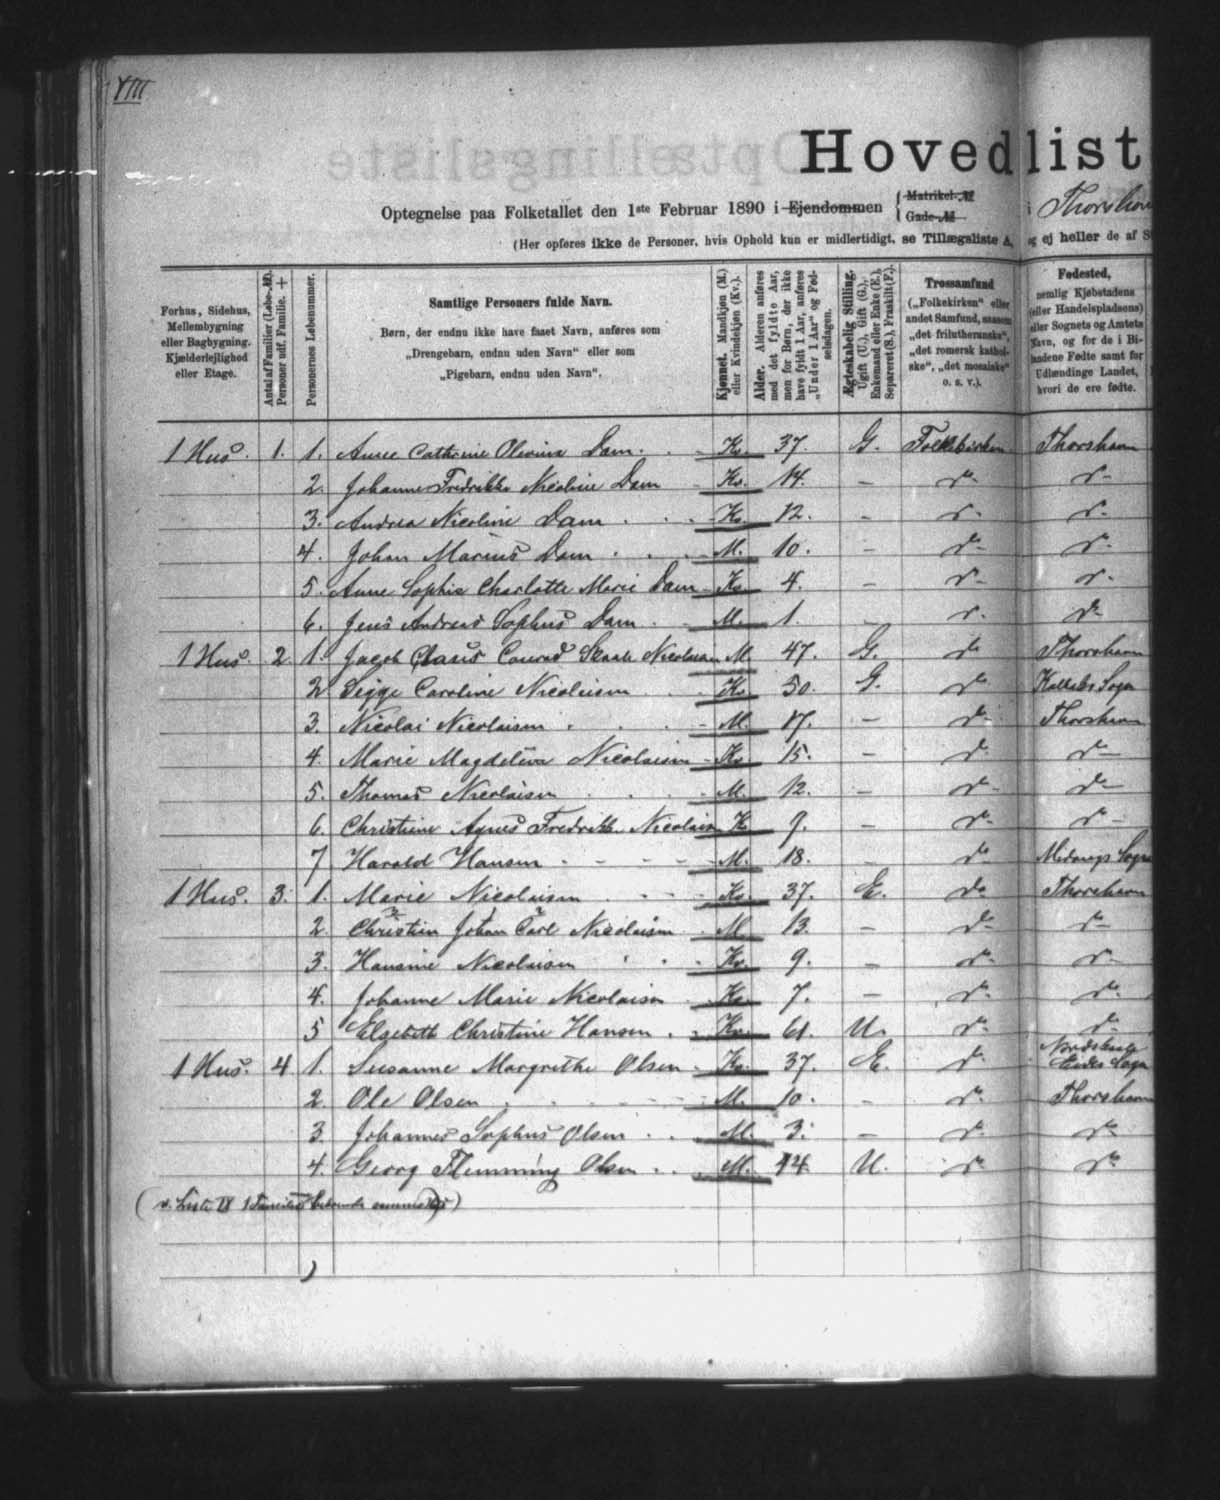 VIII
Hovedlist
Optegnelse paa Folketallet den 1ste Februar 1890 i Ejendommen { Matrikel-№ Gade-№ i Thorshavn
(Her opføres ikke de Personer, hvis Ophold kun er midlertidigt, se Tillægsliste A, og ej heller de af S
Forhus, Sidehus, Mellembygning eller Bagbygning. Kjælderlejlighed eller Etage.
Antal af Familier (Løbe-№). Personer udf. Familie. +
Personernes Løbenummer.
Samtlige Personers fulde Navn.
Børn, der endnu ikke have faaet Navn, anføres som
„Drengebarn, endnu uden Navn“ eller som
„Pigebarn, endnu uden Navn“.
Kjønnet. Mandkjøn (M.) eller Kvindekjøn (Kv.).
Alder. Alderen anføres med det fyldte Aar, men for Børn, der ikke have fyldt 1 Aar, anføres „Under 1 Aar“ og Fødselsdagen.
Ægteskabelig Stilling. Ugift (U.), Gift (G.), Enkemand eller Enke (E.), Separeret (S.), Fraskilt (F.).
Trossamfund („Folkekirken“ eller andet Samfund, saasom „det frilutheranske“, „det romersk katholske“, „det mosaiske“ o. s. v.).
Fødested, nemlig Kjøbstadens (eller Handelspladsens) eller Sognets og Amtets Navn, og for de i Bilandene Fødte samt for Udlændinge Landet, hvori de ere fødte.
1 Hus. 1. 1. Anne Cathrine Olevina Dam. Kv. 37. G. Folkekirken Thorshavn
2. Johanne Fredrikke Nicoline Dam Kv. 14. – do do
3. Andrea Nicoline Dam Kv. 12. – do do
4. Johan Marius Dam M. 10. – do do
5. Anne Sophie Charlotte Marie Dam Kv. 4. – do do
6. Jens Andreas Sophus Dam M. 1. do do
1 Hus. 2 1. Jacob Claus Conrad Nicolaisen M. 47. G. do Thorshavn
2 Sigge Caroline Nicolaisen Kv. 50. G. do Kolbals Sogn
3. Nicolai Nicolaisen M. 17. – do Thorshavn
4. Marie Magdalena Nicolaisen Kv. 15. – do do
5. Thomas Nicolaisen M. 12. – do do
6. Christine Agnes Fredrikke Nicolaisen K 9. – do do
7 Harald Hansen M. 18. – do Midvaags Sogn
1 Hus. 3. 1. Marie Nicolaisen Kv. 37. E. do Thorshavn
2. Christian Johan Carl Nicolaisen M 13. – do do
3. Hansine Nicolaisen Kv. 9. – do do
4. Johanne Marie Nicolaisen Kv. 7. – do do
5 Elsebeth Christine Hansen Kv. 61. U. do do
1 Hus. 4 1. Susanne Margrethe Olsen Kv. 37. E. do Eides Sogn
2. Ole Olsen M. 10. – do Thorshavn
3. Johannes Sophus Olsen M. 3. – do do
4. Georg Flemming Olsen M. 14. U. do do